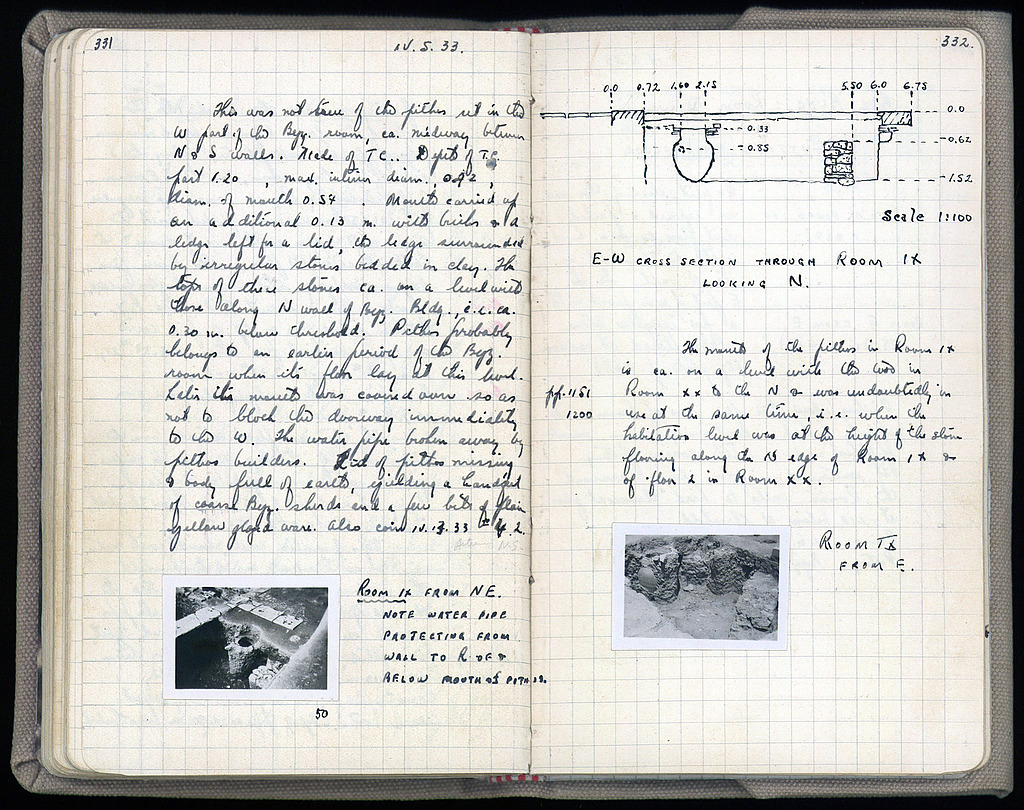 331
IV. S. 33.
This was not true of the pithos set in the
W part of the Byz. room, ca. midway between
N & S walls. Made of TC.. Depth of T.C.
part 1.20 , max. interior diam., 0.92,
diam. of mouth 0.54 . Mouth carried up
an additional 0.13 m. with bricks & a
ledge left for a lid, the ledge surrounded
by irregular stones bedded in clay. The
tops of these stones ca. on a level with
those along N wall of Byz. Bldg., i.e. ca.
0.30 m. below threshold. Pithos probably
belongs to an earlier period of the Byz.
room when its floor lay at this level.
Later its mouth was covered over so as
not to block the doorway immediately
to the W. The water pipe broken away by
pithos builders. Lid of pithos missing
& body full of earth, yielding a handful
of coarse Byz. sherds and a few bits of plain
yellow glazed ware. Also coin IV.13.33 # 2.
Room IX from NE.
Note water pipe
protecting from
wall to R of &
below mouth of pithos.
50
332.
0.0 0.72 1.60 2.15 5.50 6.0 6.75
0.0
0.33
0.62
0.85
1.52
Scale 1:100
E-W cross section through Room IX
looking N.
The mouth of the pithos in Room IX
is ca. on a level with the two in
pp. 1151 Room XX to the N & was undoubtedly in
1200 use at the same time, i.e. when the
habitation level was at the height of the stone
flooring along the N edge of Room IX &
of floor 2 in Room XX.
Room IX
from E.